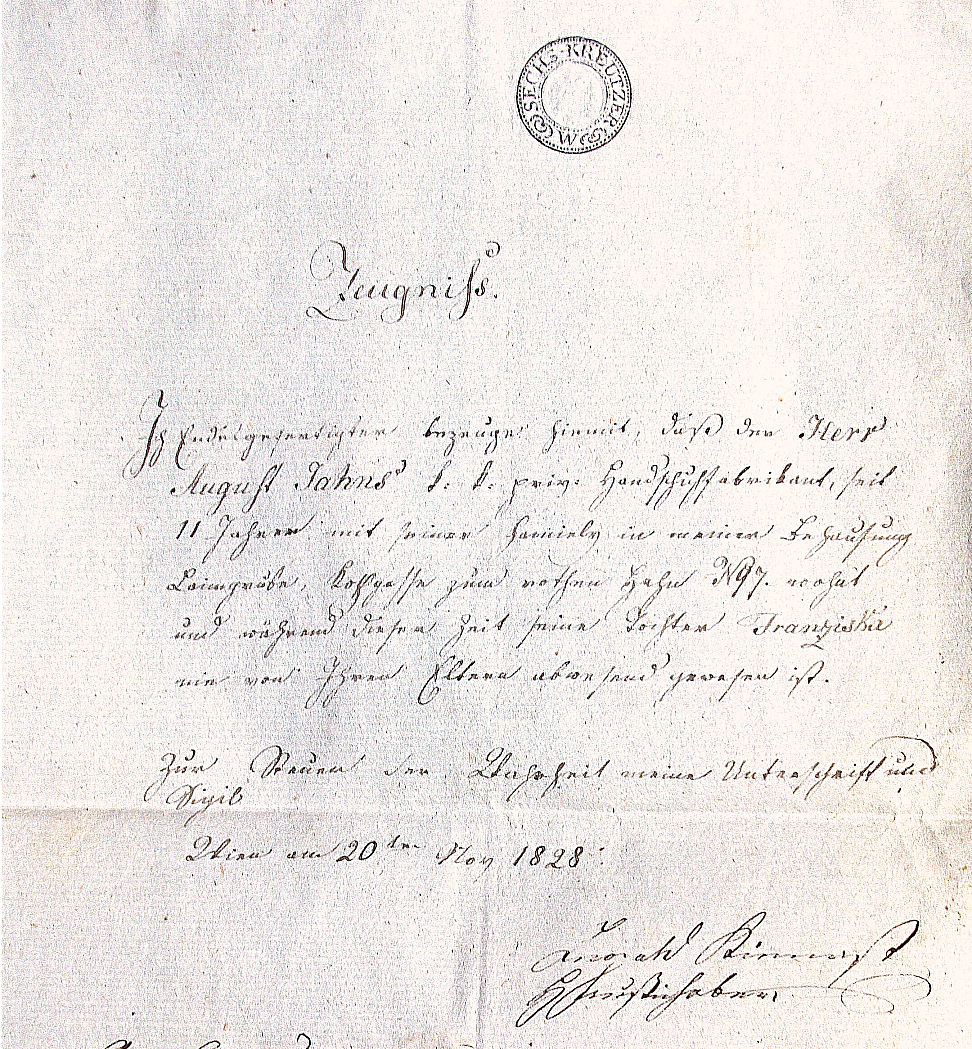 SECHS KREUTZER W
Zeugniss.
Ich Endesgefertigter bezeuge hiemit, daß der Herr
August Jahns k: k: priv: Handschuhfabrikant, seit
11 Jahren mit seiner Familie in meiner Behausung
Laimgrube, Kothgasse zum rothen Hahn N 97. wohnt
und während dieser Zeit seine Tochter Franziska
nie von Ihren Eltern abwesend gewesen ist.
Zur Steuer der Wahrheit meine Unterschrift und
Sigil
Wien am 20ten Nov 1828
Leopold
Hausinhaber